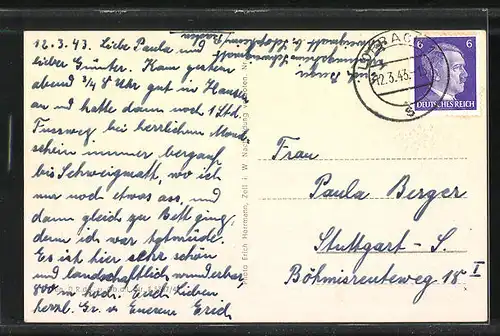 12.3.43. Liebe Paula und
lieber Günter. Kam gestern
abend 3/4 8 Uhr gut in Hausen
an und hatte dann noch 1 Std.
Fussweg bei herrlichem Mond
schein immer bergauf
bis Schweigmatt, wo ich
nur noch etwas ass, und
dann gleich zu Bett ging,
denn ich war totmüde.
Es ist hier sehr schön
und landschaftlich wunderbar
800 m hoch. Euch Lieben
herzl. Gr. v. Eurem Erich
Schweigmatt b. Schopfheim/Baden
Photo Erich Herrmann, Zell i. W. Nachahmung verboten.
12.3.43.
6 6
DEUTSCHES REICH
Frau
Paula Berger
Stuttgart - S.
Böhmisreuteweg 18 I